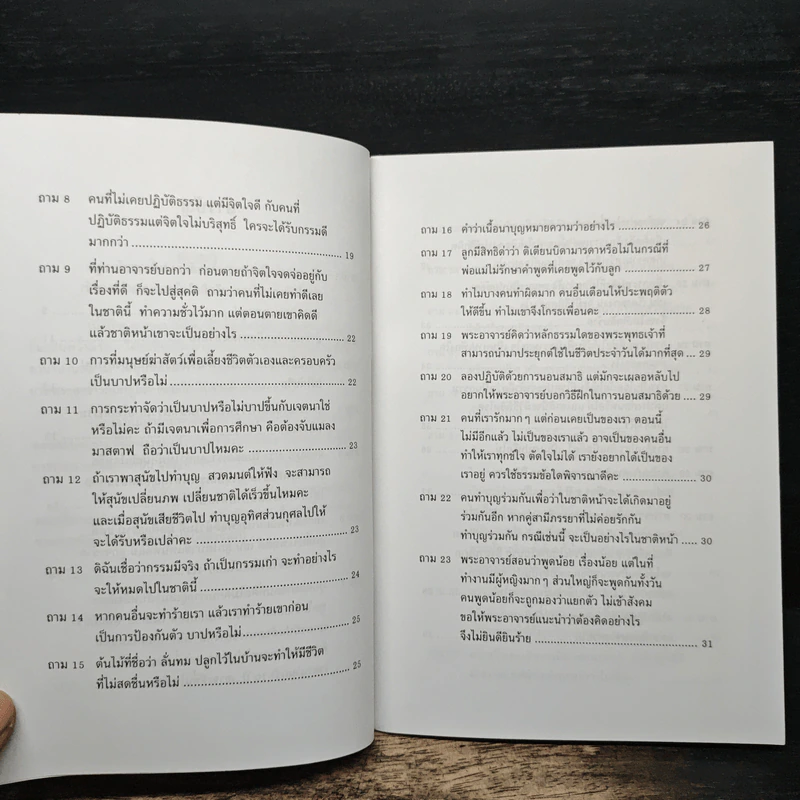 ถาม 8 คนที่ไม่เคยปฏิบัติธรรม แต่มีจิตใจดี กับคนที่
ปฏิบัติธรรมแต่จิตใจไม่บริสุทธิ์ ใครจะได้รับกรรมดี
มากกว่า ........................................ 19
ถาม 9 ที่ท่านอาจารย์บอกว่า ก่อนตายถ้าจิตใจจดจ่ออยู่กับ
เรื่องที่ดี ก็จะไปสู่สุคติ ถามว่าคนที่ไม่เคยทำดีเลย
ในชาตินี้ ทำความชั่วไว้มาก แต่ตอนตายเขาคิดดี
แล้วชาติหน้าเขาจะเป็นอย่างไร ........................ 22
ถาม 10 การที่มนุษย์ฆ่าสัตว์เพื่อเลี้ยงชีวิตตัวเองและครอบครัว
เป็นบาปหรือไม่ ................................ 22
ถาม 11 การกระทำจัดว่าเป็นบาปหรือไม่บาปขึ้นกับเจตนาใช่
หรือไม่คะ ถ้ามีเจตนาเพื่อการศึกษา คือต้องจับแมลง
มาสตาฟ ถือว่าเป็นบาปไหมคะ ................ 23
ถาม 12 ถ้าเราพาสุนัขไปทำบุญ สวดมนต์ให้ฟัง จะสามารถ
ให้สุนัขเปลี่ยนภพ เปลี่ยนชาติได้เร็วขึ้นไหมคะ
และเมื่อสุนัขเสียชีวิตไป ทำบุญอุทิศส่วนกุศลไปให้
จะได้รับหรือเปล่าคะ ............................ 23
ถาม 13 ดิฉันเชื่อว่ากรรมมีจริง ถ้าเป็นกรรมเก่า จะทำอย่างไร
จะให้หมดไปในชาตินี้ ............................ 24
ถาม 14 หากคนอื่นจะทำร้ายเรา แล้วเราทำร้ายเขาก่อน
เป็นการป้องกันตัว บาปหรือไม่ .................... 25
ถาม 15 ต้นไม้ที่ชื่อว่า ลั่นทม ปลูกไว้ในบ้านจะทำให้มีชีวิต
ที่ไม่สดชื่นหรือไม่ ................................ 25
ถาม 16 คำว่าเนื้อนาบุญหมายความว่าอย่างไร ................ 26
ถาม 17 ลูกมีสิทธิดำว่า ติเตียนบิดามารดาหรือไม่ในกรณีที่
พ่อแม่ไม่รักษาคำพูดที่เคยพูดไว้กับลูก ............ 27
ถาม 18 ทำไมบางคนทำผิดมาก คนอื่นเตือนให้ประพฤติตัว
ให้ดีขึ้น ทำไมเขาจึงโกรธเพื่อนคะ ................ 28
ถาม 19 พระอาจารย์คิดว่าหลักธรรมใดของพระพุทธเจ้าที่
สามารถนำมาประยุกต์ใช้ในชีวิตประจำวันได้มากที่สุด .. 29
ถาม 20 ลองปฏิบัติด้วยการนอนสมาธิ แต่มักจะเผลอหลับไป
อยากให้พระอาจารย์บอกวิธีฝึกในการนอนสมาธิด้วย .... 29
ถาม 21 คนที่เรารักมากๆ แต่ก่อนเคยเป็นของเรา ตอนนี้
ไม่มีอีกแล้ว ไม่เป็นของเราแล้ว อาจเป็นของคนอื่น
ทำให้เราทุกข์ใจ ตัดใจไม่ได้ เรายังอยากได้เป็นของ
เราอยู่ ควรใช้ธรรมข้อใดพิจารณาดีคะ ................ 30
ถาม 22 คนทำบุญร่วมกันเพื่อว่าในชาติหน้าจะได้เกิดมาอยู่
ร่วมกันอีก หากคู่สามีภรรยาที่ไม่ค่อยรักกัน
ทำบุญร่วมกัน กรณีเช่นนี้ จะเป็นอย่างไรในชาติหน้า .. 30
ถาม 23 พระอาจารย์สอนว่าพูดน้อย เรื่องน้อย แต่ในที่
ทำงานมีผู้หญิงมากๆ ส่วนใหญ่ก็จะพูดกันทั้งวัน
คนพูดน้อยก็จะถูกมองว่าแยกตัว ไม่เข้าสังคม
ขอให้พระอาจารย์แนะนำว่าต้องคิดอย่างไร
จึงไม่ยินดียินร้าย ................................ 31